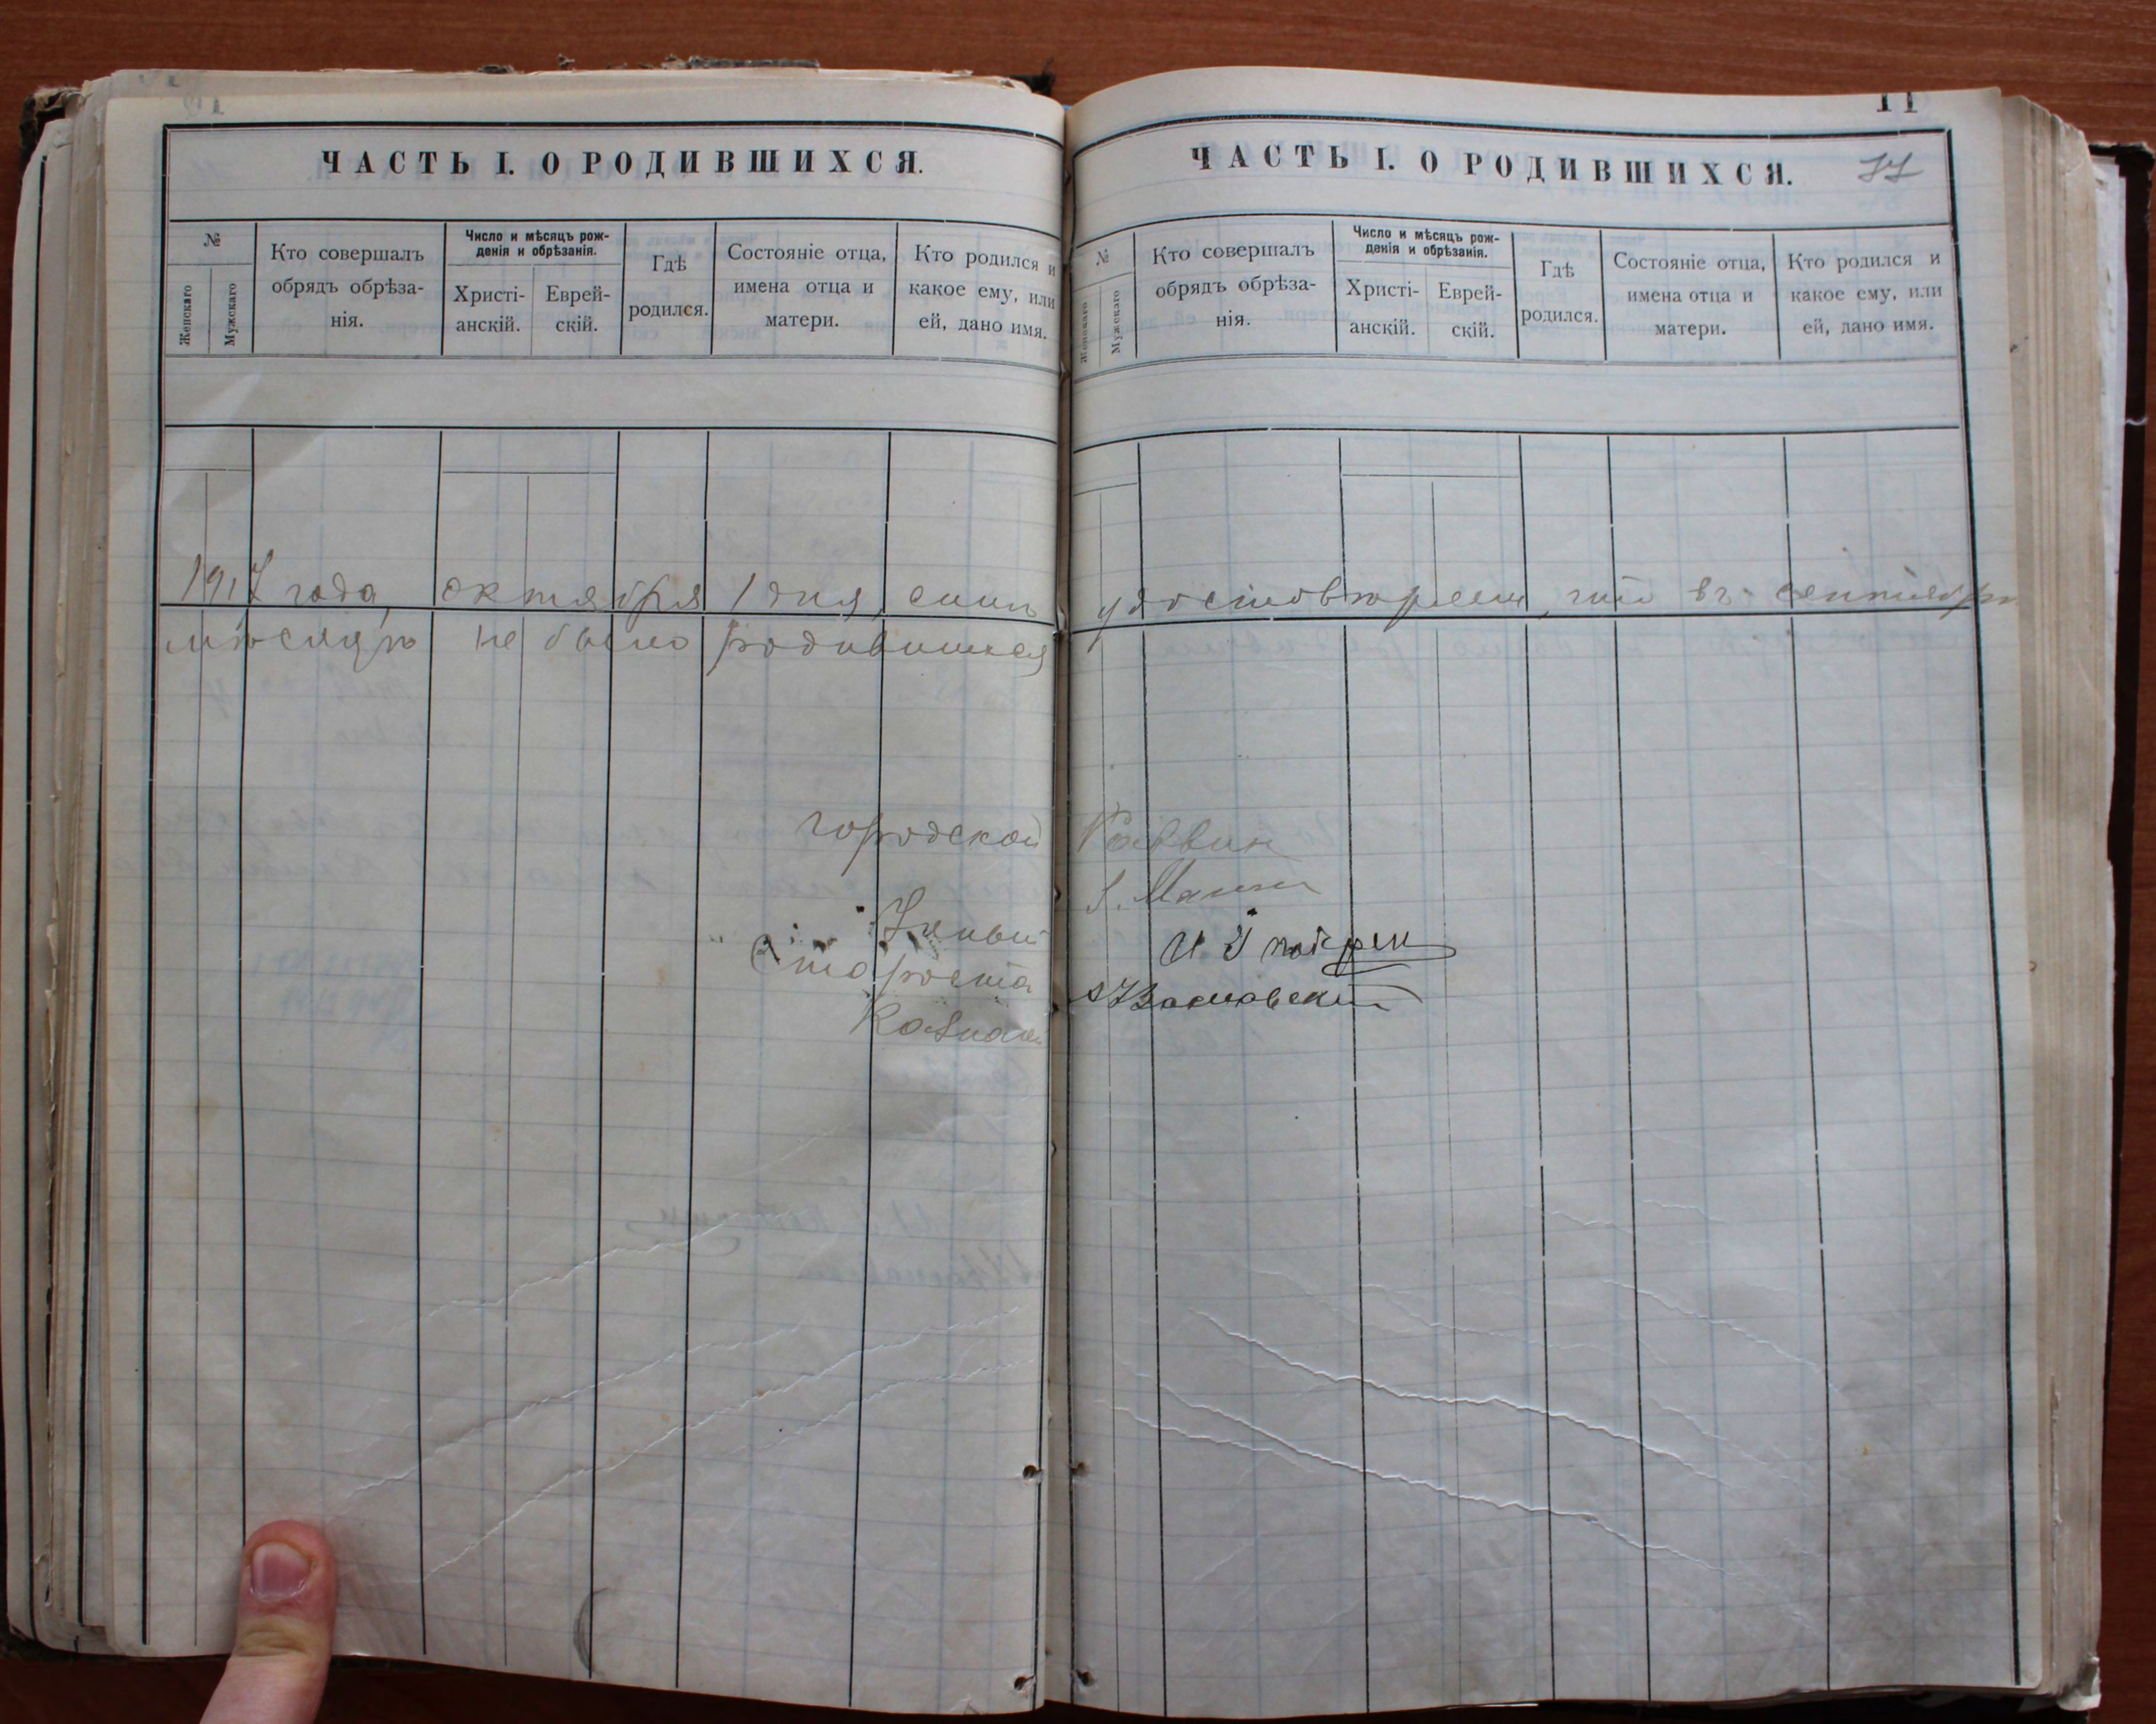 ЧАСТЬ I. О РОДИВШИХСЯ.
№
Женскаго
Мужскаго
Кто совершалъ
обрядъ обрѣза-
нія.
Число и мѣсяцъ рож-
денія и обрѣзанія.
Христі-
анскій.
Еврей-
скій.
Гдѣ
родился.
Состояніе отца,
имена отца и
матери.
Кто родился и
какое ему, или
ей, дано имя.
11
ЧАСТЬ I. О РОДИВШИХСЯ.
№
Женскаго
Мужскаго
Кто совершалъ
обрядъ обрѣза-
нія.
Число и мѣсяцъ рож-
денія и обрѣзанія.
Христі-
анскій.
Еврей-
скій.
Гдѣ
родился.
Состояніе отца,
имена отца и
матери.
Кто родился и
какое ему, или
ей, дано имя.
1917 года, октября 1 дня, симъ удостовѣряем, что въ сентябрѣ
мѣсяцѣ не было родившихся
городской Раввин
Староста
Казначей